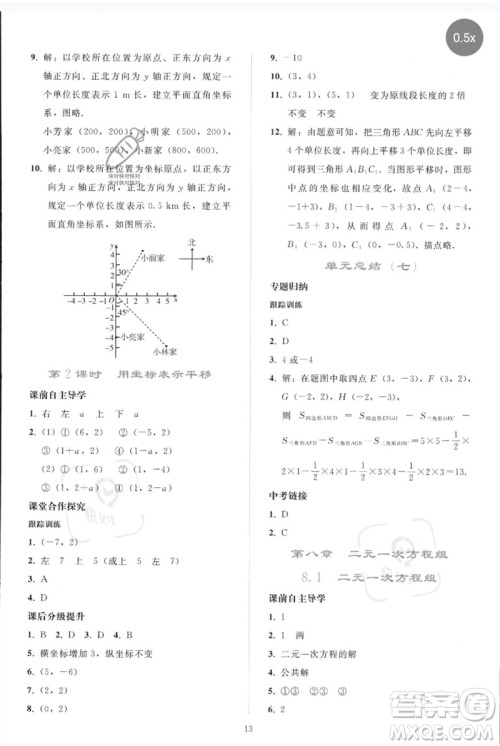 0.5x
9. 解：以学校所在位置为原点、正东方向为 x
轴正方向、正北方向为 y 轴正方向，以图中
一个单位长度表示 1 m 建立平面直角坐标
系，图略.
小芳家（200，200），小明家（500，
500），小亮家（500，200），小新家（800，600）.
10. 解：以学校所在位置为坐标原点、正东方
向为 x 轴正方向、正北方向为 y 轴正方向，
以图中一个单位长度表示 0.5 km 建立平面
直角坐标系，如图所示.
快对快对快对
北
东
小丽家
30°
45°
小亮家
小林家
-4 -3 -2 -1 0 1 2 3 4 5
第 2 课时 用坐标表示平移
课前自主导学
1. 右 左 a 上 下 a
2. （1）①（6，2） ②（－5，2）
③（1＋a，2） ④（1－a，2）
（2）①（1＋a，2） ②（1－a，2）
课堂合作探究
跟踪训练
1. （－7，2）
2. 左 7 上 5（或上 5 左 7）
3. A
课后分级提升
1. B 2. D 3. A 4. B 5. B
6. （5，－6）
7. 横坐标增加 3，纵坐标不变
8. （0，2）
9. －10
10. （3，4）
11. （3，1），（5，1） 变为原线段长度的 2 倍
不变 不变
12. 解：由题意可知，把三角形 ABC 先向左平移
4 个单位长度，再向下平移 1 个单位长度，即
可得到三角形 A₁B₁C₁，因为 A（2，4），
B（4，3），C（3，0.5），所以 A₁（2－4，
4－1），B₁（4－4，3－1），C₁（3－4，
0.5－1），从而得 A₁（－2，3），
B₁（0，2），C₁（－1，－0.5）. 描点略.
单元总结（七）
专题归纳
跟踪训练
1. C
2. D
3. 4 或－4
4. 解：在题图中取点 E（3，3），F（－2，
3），G（－2，－2），H（3，－2），
则 S四边形ABCD＝S四边形EFGH－S三角形BEC－
S三角形AFD－S三角形AGB－S三角形CHD＝5×5－1/2×
2×1－1/2×1×3－1/2×4×2－1/2×3×4＝13.
中考链接
1. D
2. D
第八章 二元一次方程组
8.1 二元一次方程组
课前自主导学
1. 1
2. 1 两
3. 二元一次方程的解
4. 公共解
5. ①③ ②③ ③
6. 2
13